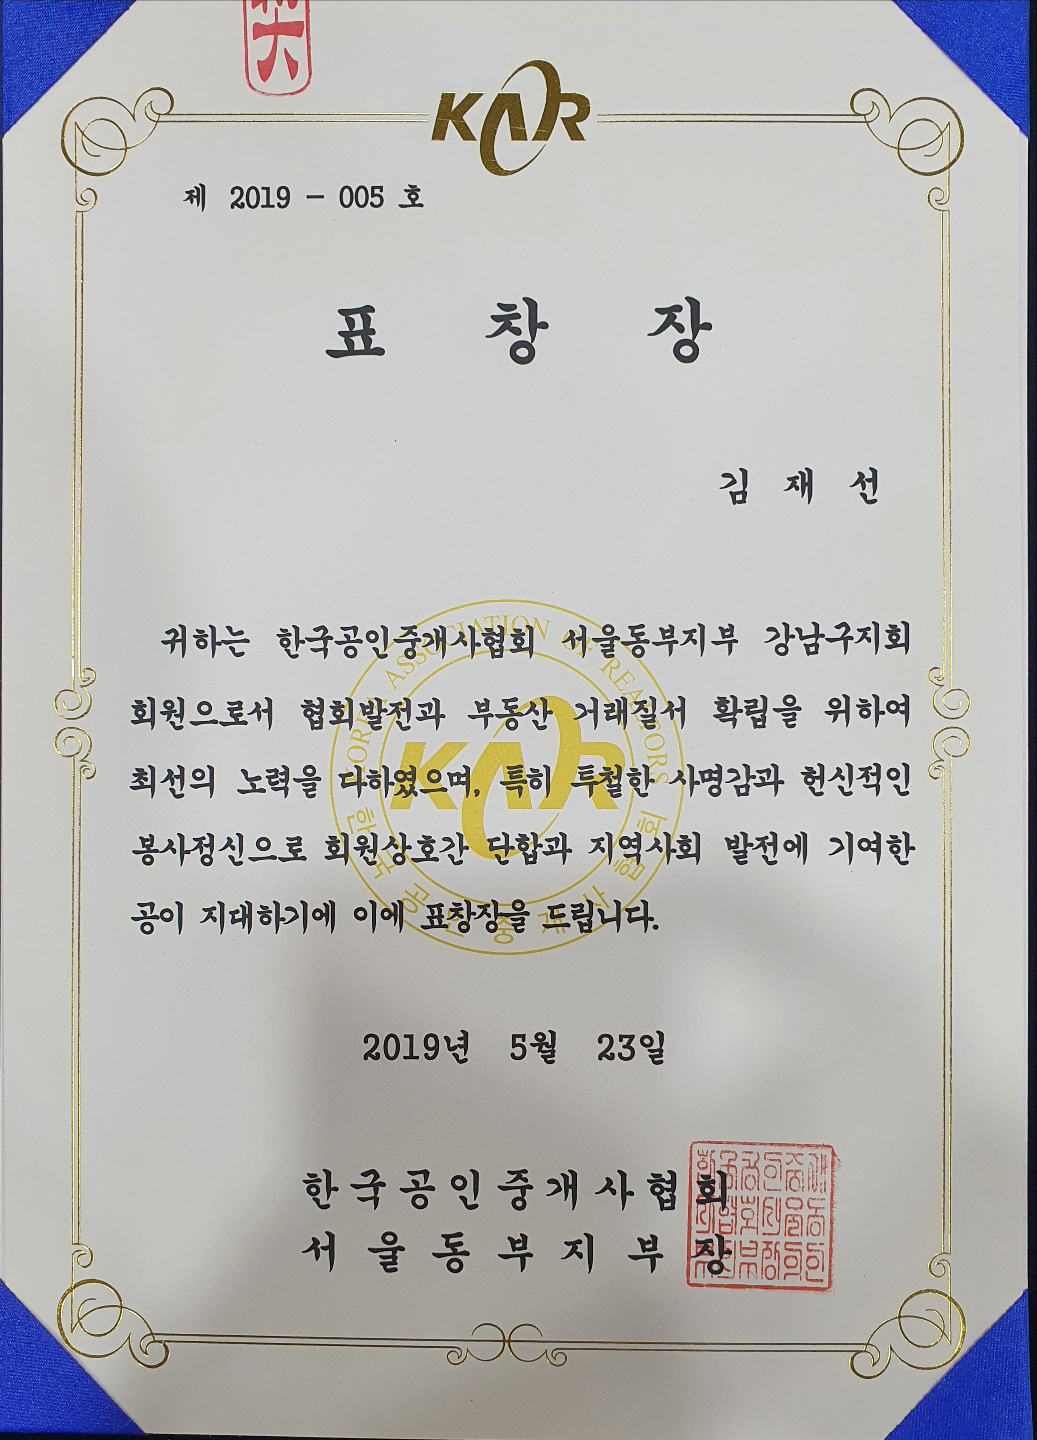 KAR
제 2019 - 005 호
표 창 장
김 재 선
귀하는 한국공인중개사협회 서울동부지부 강남구지회
회원으로서 협회발전과 부동산 거래질서 확립을 위하여
최선의 노력을 다하였으며, 특히 투철한 사명감과 헌신적인
봉사정신으로 회원상호간 단합과 지역사회 발전에 기여한
공이 지대하기에 이에 표창장을 드립니다.
KOREA ASSOCIATION OF REALTORS
KAR
한국공인중개사협회
2019년 5월 23일
한국공인중개사협회
서울동부지부장